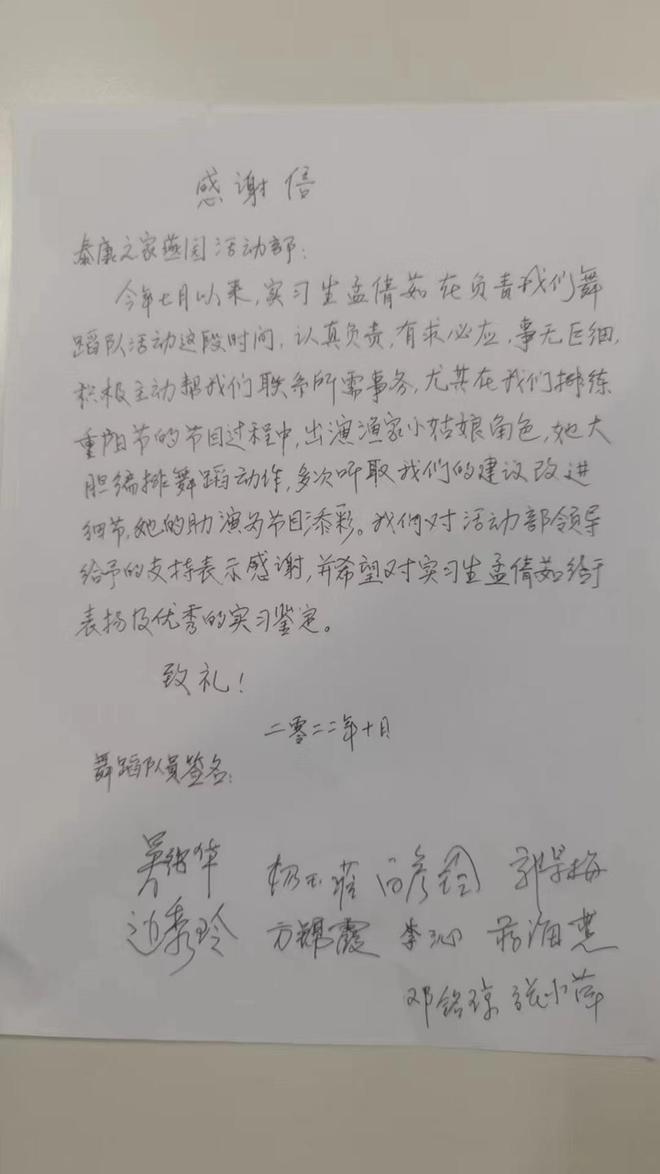 感谢信
泰康之家燕园活动部:
今年七月以来,实习生孟倩茹在负责我们舞
蹈队活动这段时间,认真负责,有求必应,事无巨细,
积极主动帮我们联系所需事务,尤其在我们排练
重阳节的节目过程中,出演渔家小姑娘角色,她大
胆编排舞蹈动作,多次听取我们的建议改进
细节,她的助演为节目添彩。我们对活动部领导
给予的支持表示感谢,并希望对实习生孟倩茹给于
表扬及优秀的实习鉴定。
致礼!
二零二二年十月
舞蹈队员签名:
郭景梅
边秀玲 方锦霞 李沁 蒋海慧
邓铭琼 张小萍